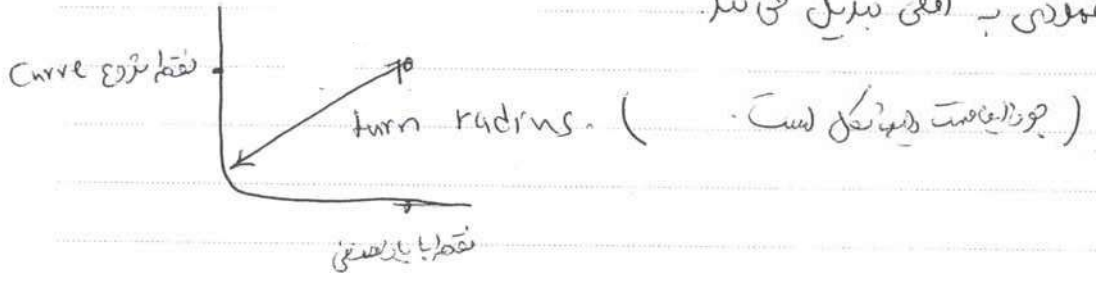 عمودی به افقی تبدیل می کند.
نقطه شروع Curve
turn radius. (چون این قسمت شکل است.)
نقطه پایان منحنی